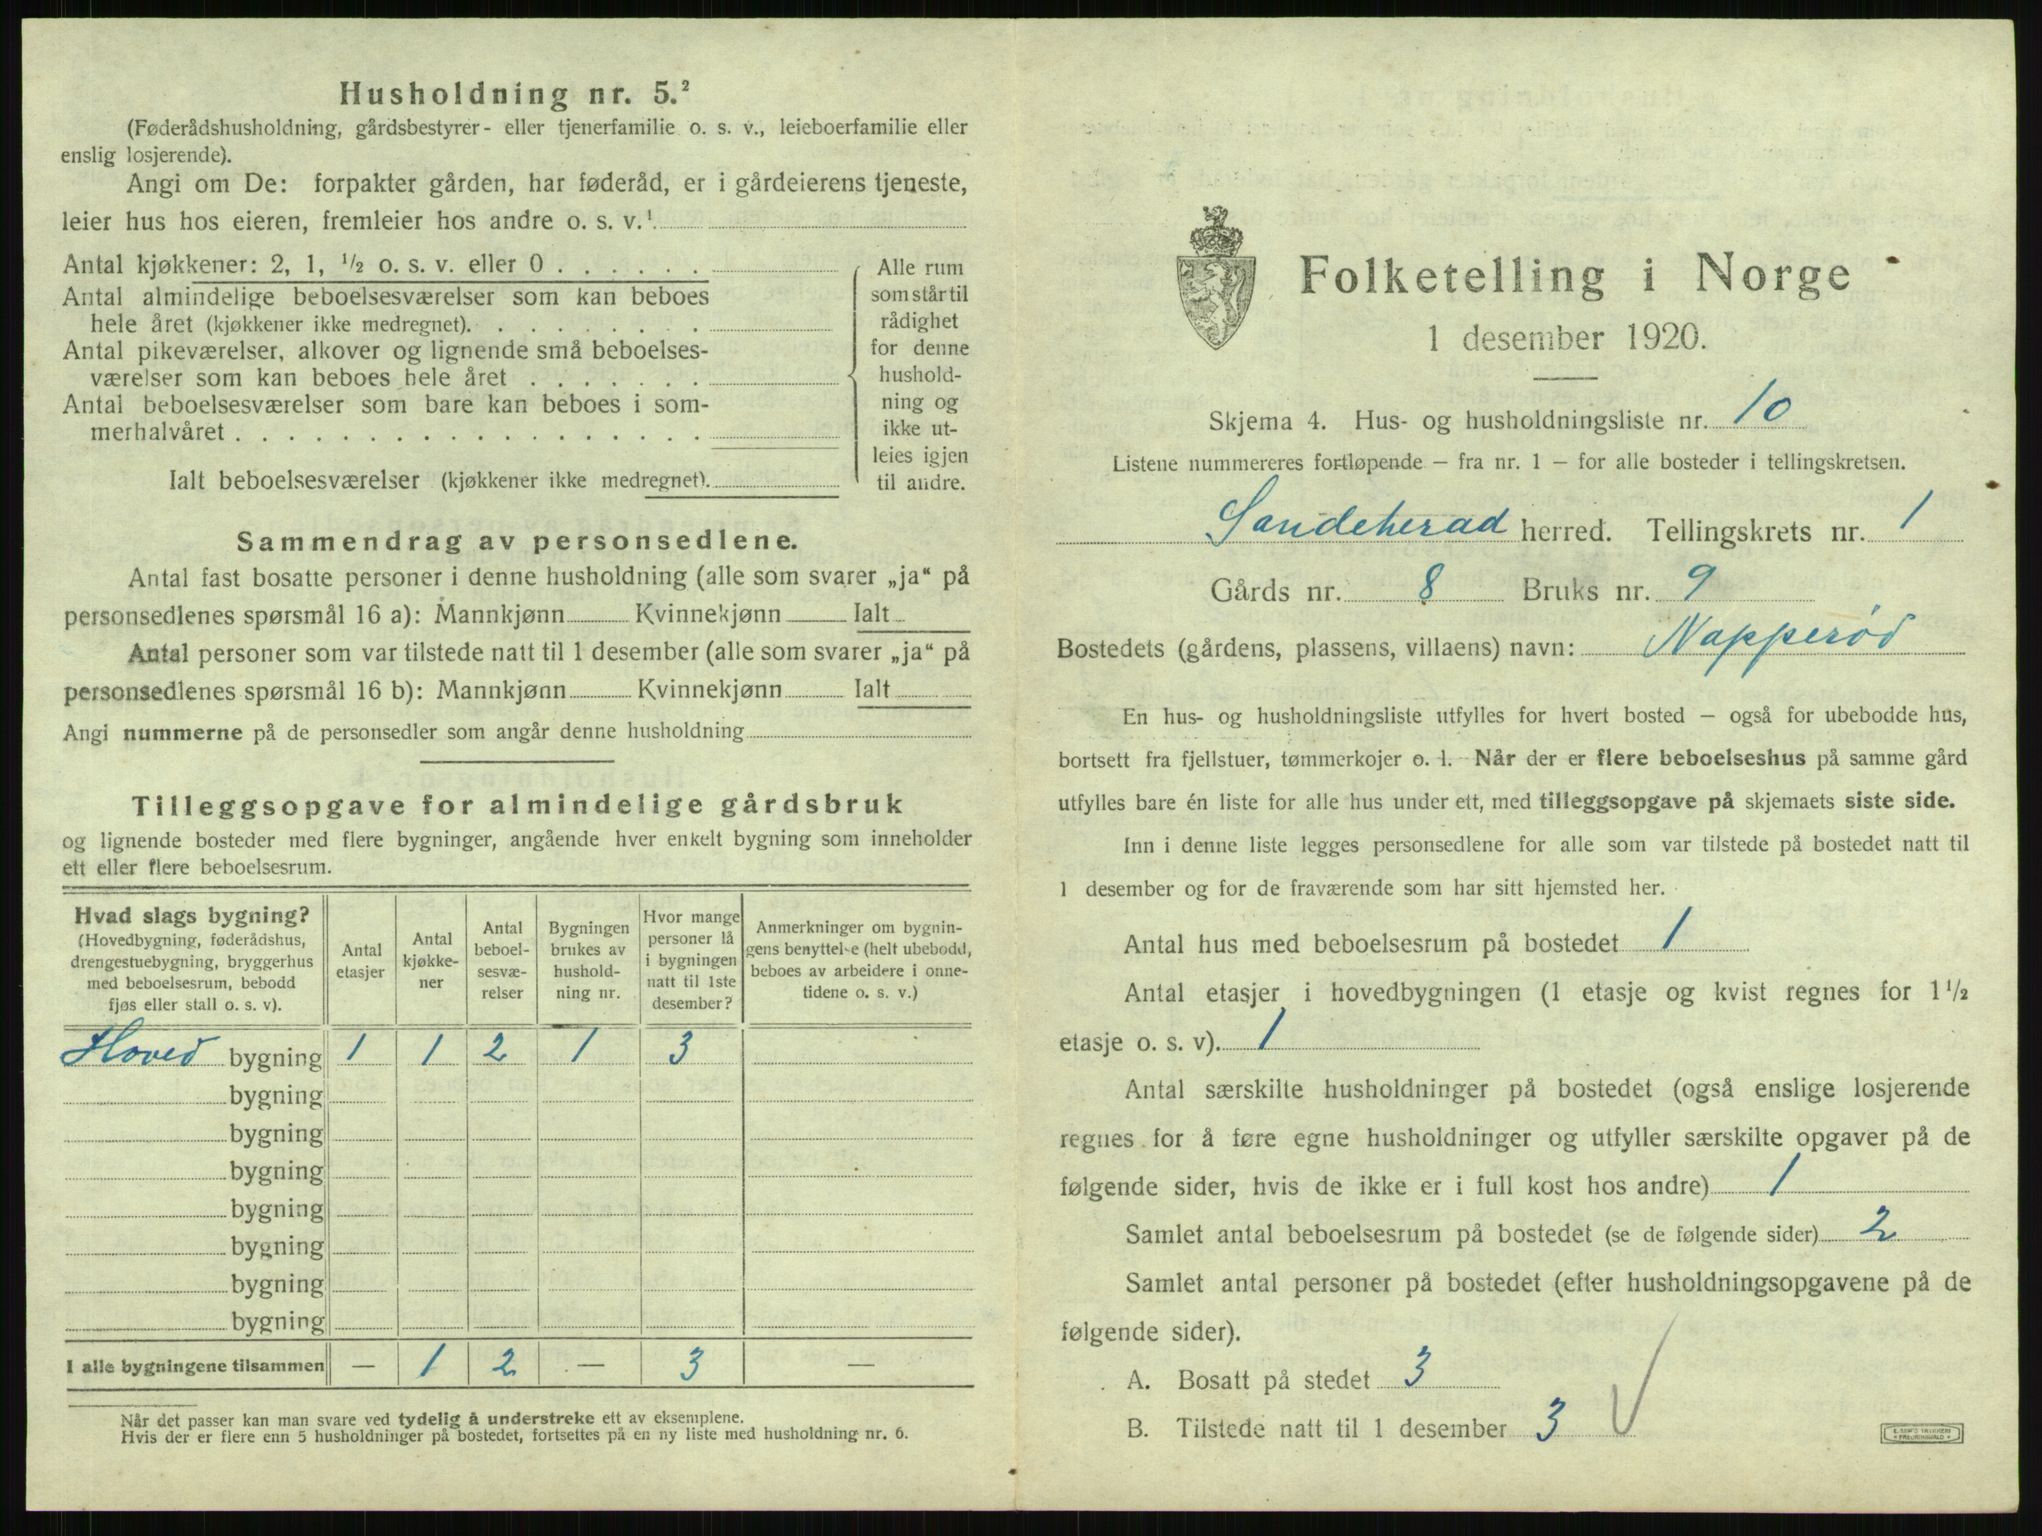 Husholdning nr. 5.²
(Føderådshusholdning, gårdsbestyrer- eller tjenerfamilie o. s. v., leieboerfamilie eller
enslig losjerende).
Angi om De: forpakter gården, har føderåd, er i gårdeierens tjeneste,
leier hus hos eieren, fremleier hos andre o. s. v.¹
Antal kjøkkener: 2, 1, ¹/₂ o. s. v. eller 0 . . . . . .
Antal almindelige beboelsesværelser som kan beboes
hele året (kjøkkener ikke medregnet). . . . . . . . .
Antal pikeværelser, alkover og lignende små beboelses-
værelser som kan beboes hele året . . . . . . .
Antal beboelsesværelser som bare kan beboes i som-
merhalvåret . . . . . . . . . . . . . . . . . .
Alle rum
som står til
rådighet
for denne
hushold-
ning og
ikke ut-
leies igjen
til andre.
Ialt beboelsesværelser (kjøkkener ikke medregnet).
Sammendrag av personsedlene.
Antal fast bosatte personer i denne husholdning (alle som svarer „ja“ på
personsedlenes spørsmål 16 a): Mannkjønn Kvinnekjønn Ialt
Antal personer som var tilstede natt til 1 desember (alle som svarer „ja“ på
personsedlenes spørsmål 16 b): Mannkjønn Kvinnekjønn Ialt
Angi nummerne på de personsedler som angår denne husholdning
Tilleggsopgave for almindelige gårdsbruk
og lignende bosteder med flere bygninger, angående hver enkelt bygning som inneholder
ett eller flere beboelsesrum.
Hvad slags bygning?
(Hovedbygning, føderådshus,
drengestuebygning, bryggerhus
med beboelsesrum, bebodd
fjøs eller stall o. s. v).
Antal
etasjer
Antal
kjøkke-
ner
Antal
beboel-
sesvæ-
relser
Bygningen
brukes av
hushold-
ning nr.
Hvor mange
personer lå
i bygningen
natt til 1ste
desember?
Anmerkninger om bygnin-
gens benyttelse (helt ubebodd,
beboes av arbeidere i onne-
tidene o. s. v.)
Hoved bygning 1 1 2 1 3
bygning
bygning
bygning
bygning
bygning
bygning
bygning
I alle bygningene tilsammen — 1 2 — 3 —
Når det passer kan man svare ved tydelig å understreke ett av eksemplene.
Hvis der er flere enn 5 husholdninger på bostedet, fortsettes på en ny liste med husholdning nr. 6.
Folketelling i Norge
1 desember 1920.
Skjema 4. Hus- og husholdningsliste nr. 10
Listene nummereres fortløpende – fra nr. 1 – for alle bosteder i tellingskretsen.
Sandeherad herred. Tellingskrets nr. 1
Gårds nr. 8 Bruks nr. 9
Bostedets (gårdens, plassens, villaens) navn: Napperød
En hus- og husholdningsliste utfylles for hvert bosted – også for ubebodde hus,
bortsett fra fjellstuer, tømmerkojer o. l. Når der er flere beboelseshus på samme gård
utfylles bare én liste for alle hus under ett, med tilleggsopgave på skjemaets siste side.
Inn i denne liste legges personsedlene for alle som var tilstede på bostedet natt til
1 desember og for de fraværende som har sitt hjemsted her.
Antal hus med beboelsesrum på bostedet 1
Antal etasjer i hovedbygningen (1 etasje og kvist regnes for 1¹/₂
etasje o. s. v). 1
Antal særskilte husholdninger på bostedet (også enslige losjerende
regnes for å føre egne husholdninger og utfyller særskilte opgaver på de
følgende sider, hvis de ikke er i full kost hos andre) 1
Samlet antal beboelsesrum på bostedet (se de følgende sider) 2
Samlet antal personer på bostedet (efter husholdningsopgavene på de
følgende sider).
A. Bosatt på stedet 3
B. Tilstede natt til 1 desember 3